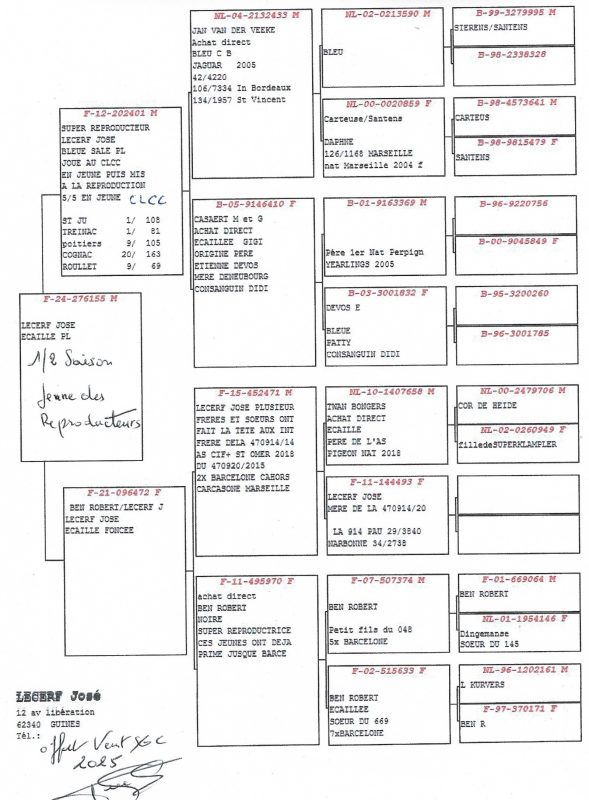 F-24-276155 M
LECERF JOSE
ECAILLE PL
1/2 Saison
Jeune des
Reproducteurs
F-12-202401 M
SUPER REPRODUCTEUR
LECERF JOSE
BLEUE SALE PL
JOUE AU CLCC
EN JEUNE PUIS MIS
A LA REPRODUCTION
5/5 EN JEUNE CLCC
ST JU 1/ 108
TREINAC 1/ 81
poitiers 9/ 105
COGNAC 20/ 163
ROULLET 9/ 69
F-21-096472 F
BEN ROBERT/LECERF J
LECERF JOSE
ECAILLE FONCEE
NL-04-2132433 M
JAN VAN DER VEEKE
Achat direct
BLEU C B
JAGUAR 2005
42/4220
106/7334 In Bordeaux
134/1957 St Vincent
B-05-9146410 F
CASAERT M et G
ACHAT DIRECT
ECAILLEE GIGI
ORIGINE PERE
ETIENNE DEVOS
MERE DENEUBOURG
CONSANGUIN DIDI
F-15-452471 M
LECERF JOSE PLUSIEUR
FRERES ET SOEURS ONT
FAIT LA TETE AUX INT
FRERE DELA 470914/14
AS CIF+ ST OMER 2018
DU 470920/2015
2X BARCELONE CAHORS
CARCASONE MARSEILLE
F-11-495970 F
achat direct
BEN ROBERT
NOIRE
SUPER REPRODUCTRICE
CES JEUNES ONT DEJA
PRIME JUSQUE BARCE
NL-02-0213590 M
BLEU
NL-00-0020859 F
Carteuse/Santens
DAPHNE
126/1168 MARSEILLE
nat Marseille 2004 f
B-01-9163369 M
Père 1er Nat Perpign
YEARLINGS 2005
B-03-3001832 F
DEVOS E
BLEUE
PATTY
CONSANGUIN DIDI
NL-10-1407658 M
TWAN BONGERS
ACHAT DIRECT
ECAILLE
PERE DE L'AS
PIGEON NAT 2018
F-11-144493 F
LECERF JOSE
MERE DE LA 470914/20
LA 914 PAU 29/3840
NARBONNE 34/2738
F-07-507374 M
BEN ROBERT
Petit fils du 048
5x BARCELONE
F-02-515633 F
BEN ROBERT
ECAILLEE
SOEUR DU 669
7xBARCELONE
B-99-3279995 M
SIERENS/SANTENS
B-98-2338328
B-98-4573641 M
CARTEUS
B-98-9815479 F
SANTENS
B-96-9220756
B-00-9045849 F
B-95-3200260
B-96-3001785
NL-00-2479706 M
COR DE HEIDE
NL-02-0260949 F
filledeSUPERKLAMPLER
F-01-669064 M
BEN ROBERT
NL-01-1954146 F
Dingemanse
SOEUR DU 145
NL-96-1202161 M
L KURVERS
F-97-370171 F
BEN R
LECERF José
12 av libération
62340 GUINES
Tél.:
offert Vent
2025